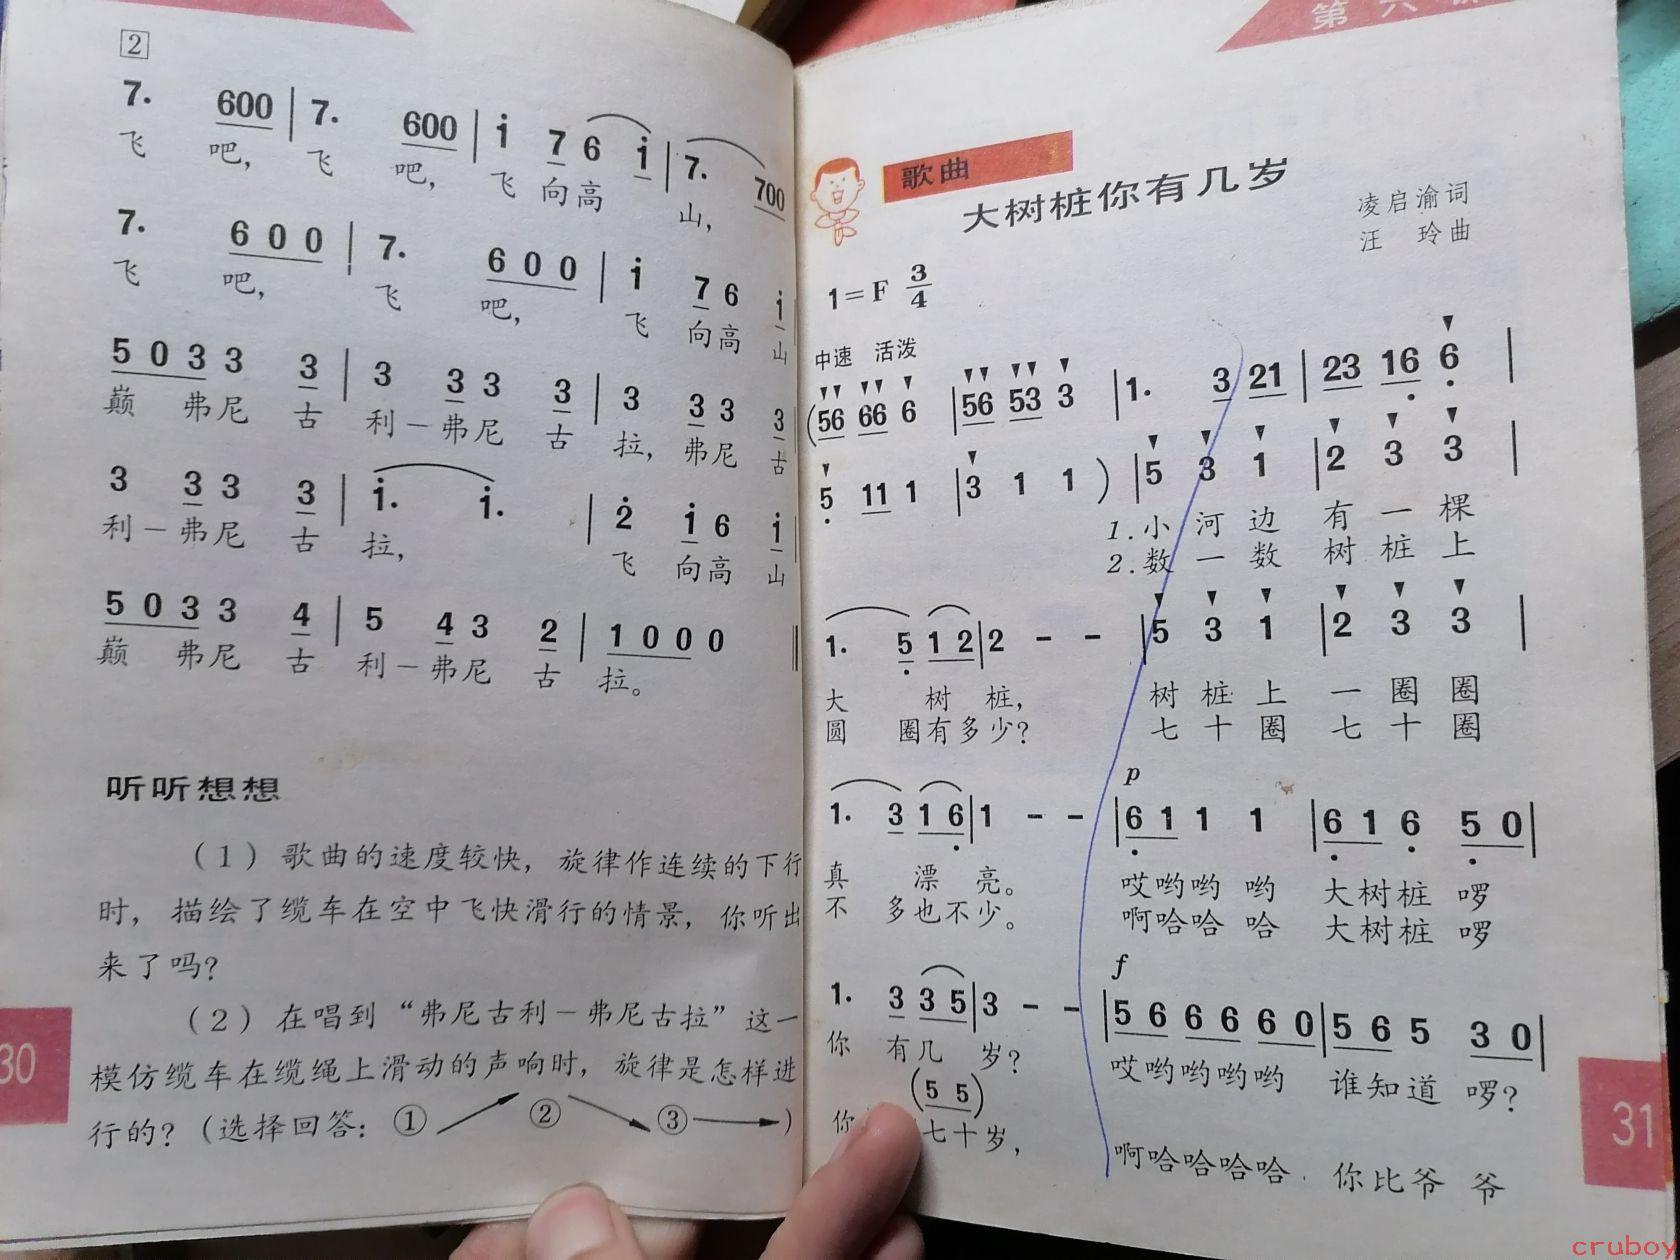 2
7. 600 | 7. 600 | i 7 6 i | 7. 700
飞 吧, 飞 吧, 飞 向高 山,
7. 6 0 0 | 7. 6 0 0 | i 7 6 i
飞 吧, 飞 吧, 飞 向高 山
5 0 3 3 3 | 3 3 3 3 | 3 3 3 3
巅 弗尼 古 利－弗尼 古 拉, 弗尼 古
3 3 3 3 | i. i. | 2 i 6 i
利－弗尼 古 拉, 飞 向高 山
5 0 3 3 4 | 5 4 3 2 | 1 0 0 0
巅 弗尼 古 利－弗尼 古 拉。
听听想想
(1) 歌曲的速度较快, 旋律作连续的下行
时, 描绘了缆车在空中飞快滑行的情景, 你听出
来了吗?
(2) 在唱到“弗尼古利－弗尼古拉”这一
模仿缆车在缆绳上滑动的声响时, 旋律是怎样进
行的? (选择回答: ① ② ③ )
30
第六课
歌曲
大树桩你有几岁
凌启渝词
汪 玲曲
1=F 3/4
中速 活泼
(56 66 6 | 56 53 3 | 1. 3 21 | 23 16 6 |
5 11 1 | 3 1 1 ) | 5 3 1 | 2 3 3 |
1.小 河 边 有 一 棵
2.数 一 数 树 桩 上
1. 5 1 2 | 2 - - | 5 3 1 | 2 3 3 |
大 树 桩, 树 桩 上 一 圈 圈
圆 圈有多少? 七 十 圈 七 十 圈
p
1. 3 1 6 | 1 - - | 6 1 1 1 | 6 1 6 5 0 |
真 漂 亮。 哎哟哟 哟 大树桩 啰
不 多也不少。 啊哈哈 哈 大树桩 啰
f
1. 3 3 5 | 3 - - | 5 6 6 6 6 0 | 5 6 5 3 0 |
你 有几 岁? 哎哟哟哟哟 谁知道 啰?
(5 5)
你 七十岁, 啊哈哈哈哈 你比爷 爷
31
cruboy